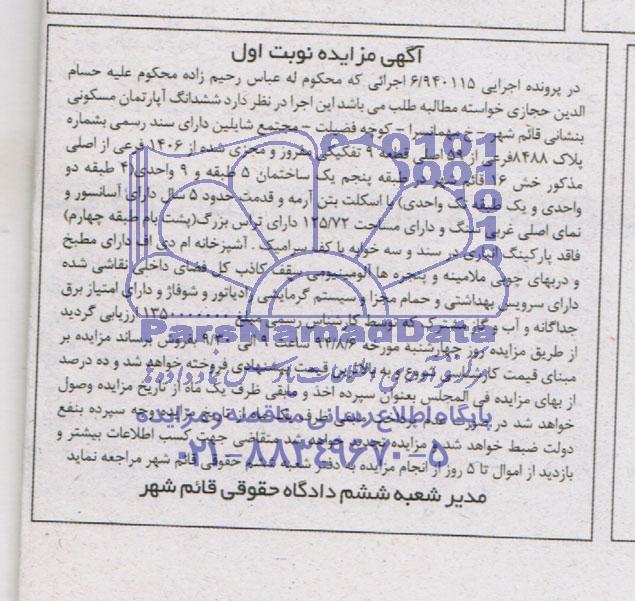 آگهی مزایده نوبت اول
در پرونده اجرایی ۶/۹۴۰۱۱۵ اجرائی که محکوم له عباس رحیم زاده محکوم علیه حسام
الدین حجازی خواسته مطالبه طلب می باشد این اجرا در نظر دارد ششدانگ آپارتمان مسکونی
بنشانی قائم شهر – خ مهمانسرا – کوچه فضیلت – مجتمع شایلین دارای سند رسمی بشماره
پلاک ۸۴۸۸فرعی از ۵۹ اصلی قطعه ۹ تفکیکی مفروز و مجزی شده از ۱۴۰۶ فرعی از اصلی
مذکور خش ۱۶ قائم شهر در طبقه پنجم یک ساختمان ۵ طبقه و ۹ واحدی(۴ طبقه دو
واحدی و یک طبقه تک واحدی) با اسکلت بتن آرمه و قدمت حدود ۵ سال دارای آسانسور و
نمای اصلی غربی سنگ و دارای مساحت ۱۲۵/۷۲ دارای تراس بزرگ(پشت بام طبقه چهارم)
فاقد پارکینگ انباری در سند و سه خوابه با کف سرامیک . آشپزخانه ام دی اف دارای مطبخ
و دربهای چوبی ملامینه و پنجره ها آلومینیومی سقف کاذب کل فضای داخلی نقاشی شده
دارای سرویس بهداشتی و حمام مجزا و سیستم گرمایشی رادیاتور و شوفاژ و دارای امتیاز برق
جداگانه و آب و گاز مشترک که توسط کارشناس رسمی مبلغ ارزیابی گردید
از طریق مزایده روز چهارشنبه مورخه ۹۴/۸/۶ ساعت ۹ الی ۹/۳۰ بفروش برساند مزایده بر
مبنای قیمت کارشناسی شروع و به بالاترین قیمت پیشنهادی فروخته خواهد شد و ده درصد
از بهای مزایده فی المجلس بعنوان سپرده اخذ و مابقی ظرف یک ماه از تاریخ مزایده وصول
خواهد شد در صورت عدم پرداخت مابقی ظرف یک ماه از تاریخ مزایده وجه سپرده بنفع
دولت ضبط خواهد شد و مزایده تجدید خواهد شد متقاضی جهت کسب اطلاعات بیشتر و
بازدید از اموال تا ۵ روز از انجام مزایده به دفتر شعبه ششم حقوقی قائم شهر مراجعه نماید
مدیر شعبه ششم دادگاه حقوقی قائم شهر
ParsNamadData
مرکز فرآوری اطلاعات پارس نماد داده ها
پایگاه اطلاع رسانی مناقصه و مزایده
۰۲۱-۸۸۳۴۹۶۷۰-۵